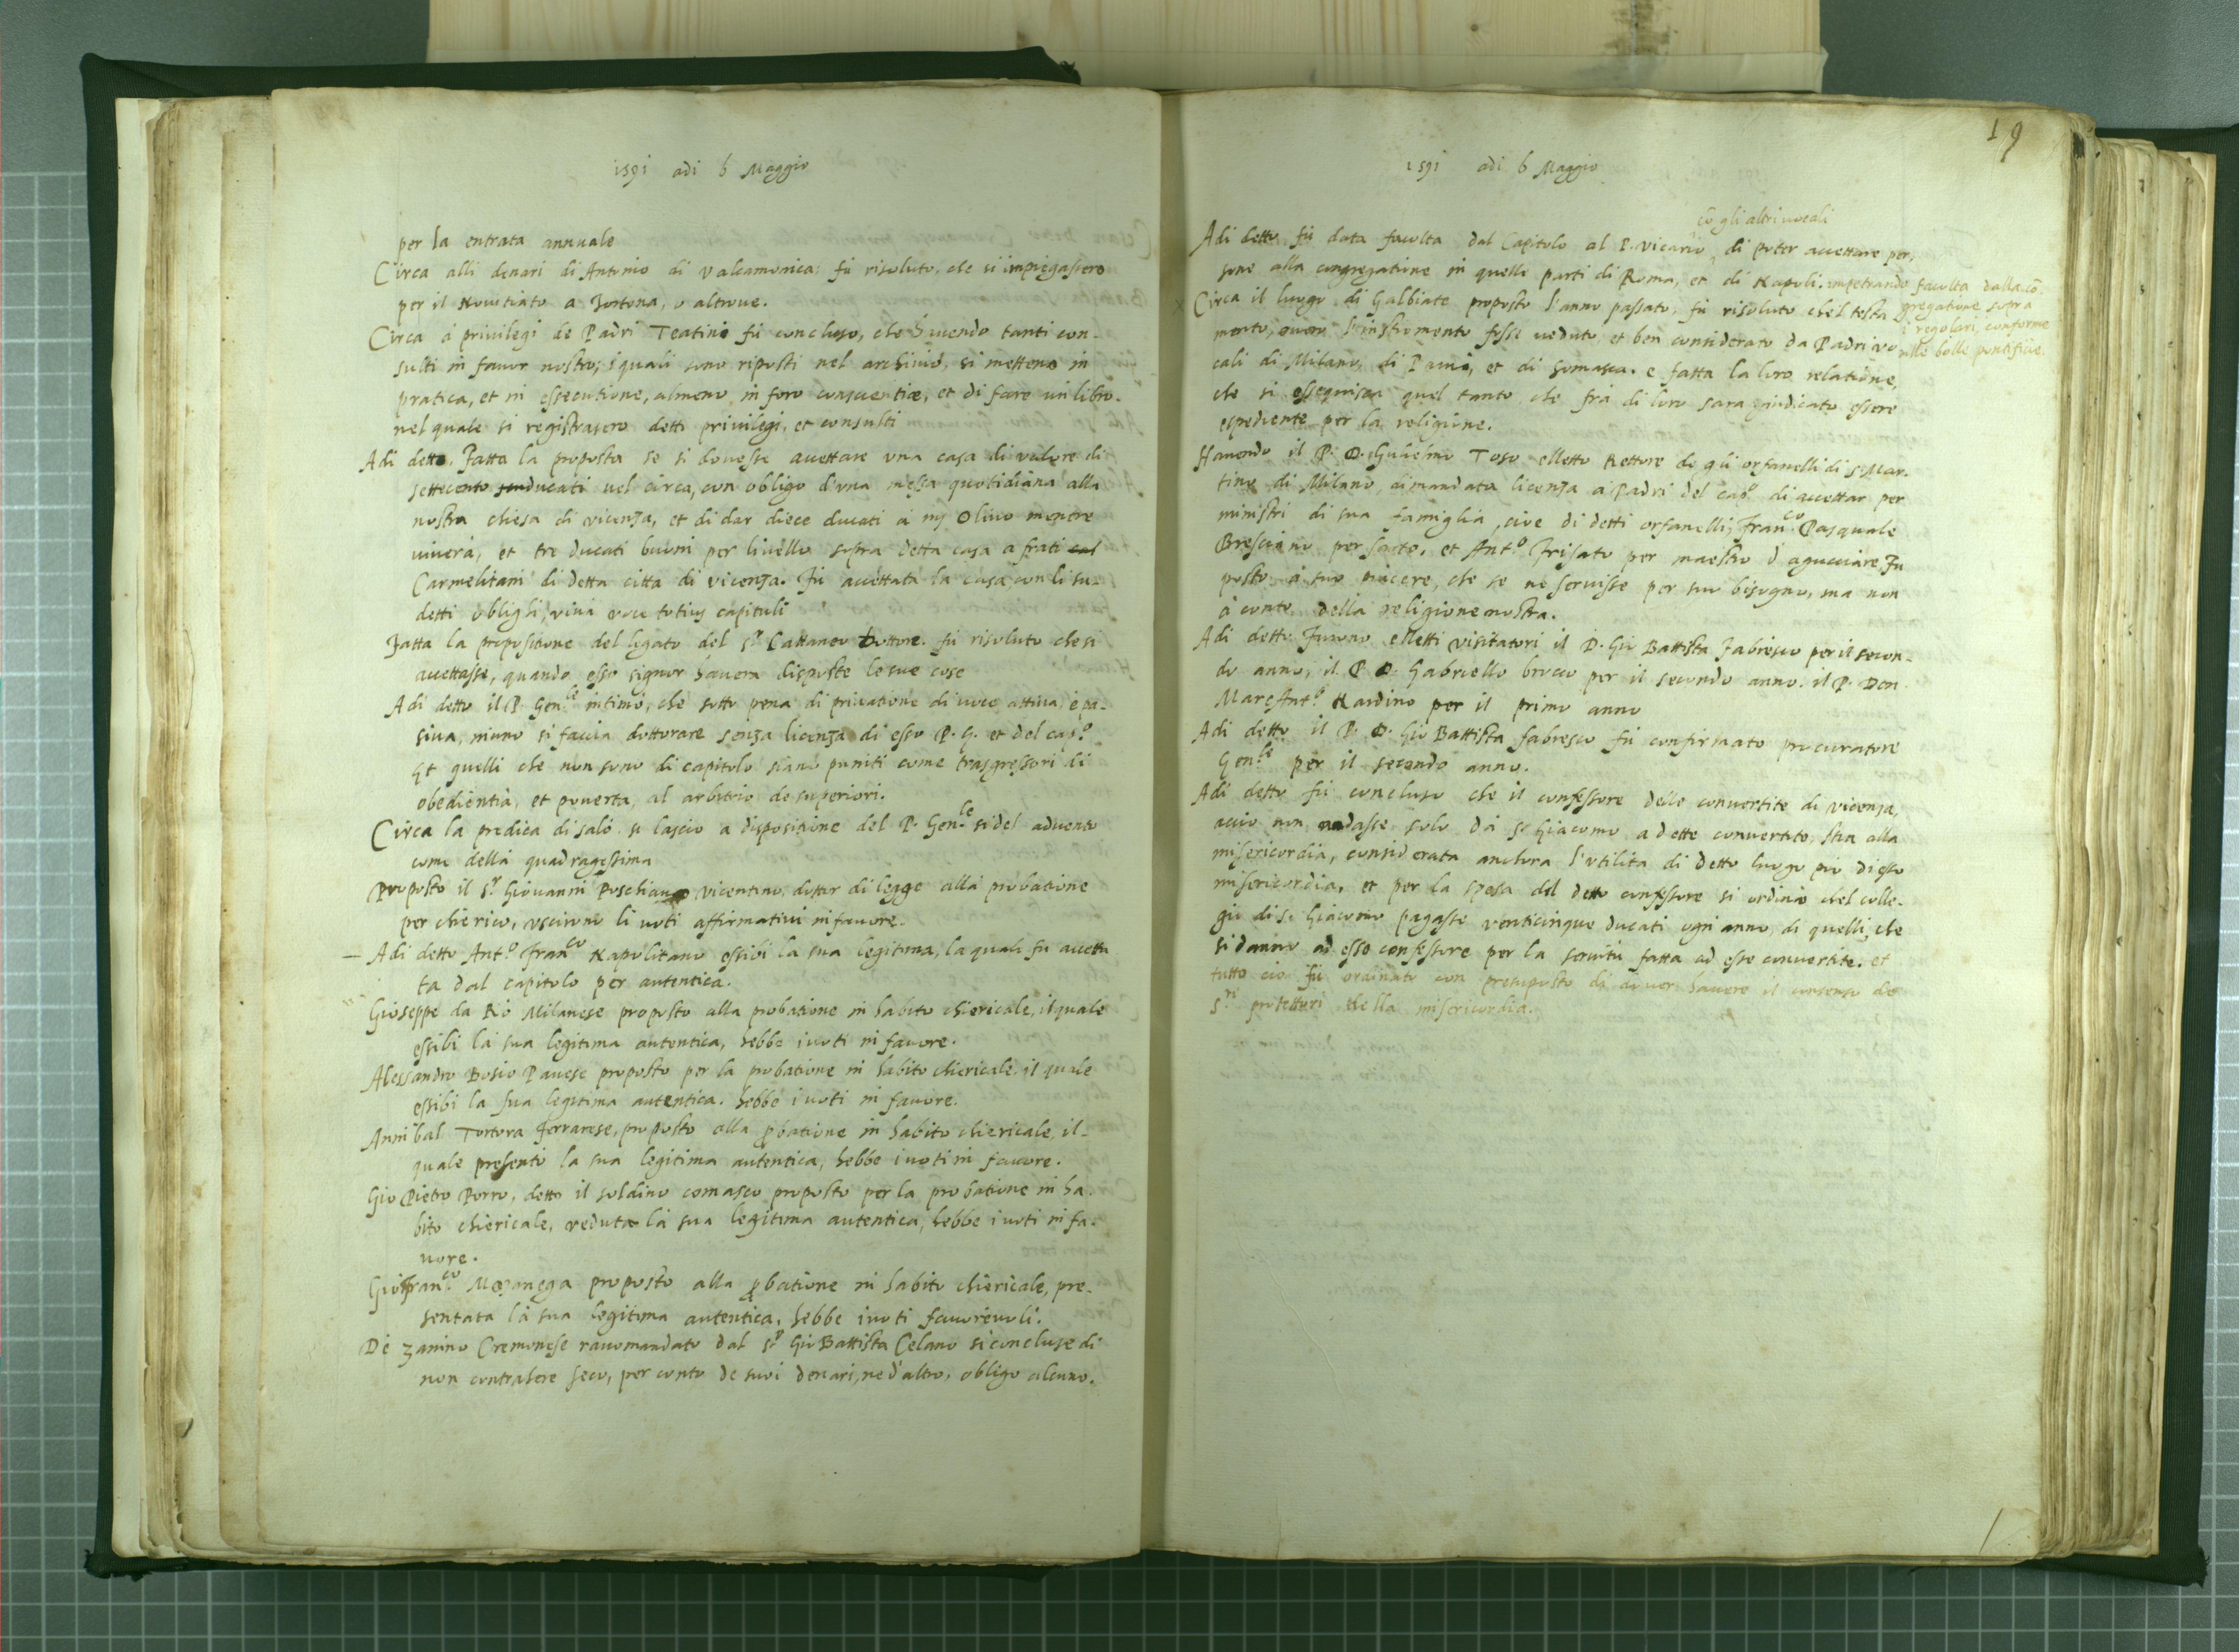 1591 adi 6 Maggio
per la entrata annuale
Circa alli denari di Antonio di Valcamonica fù risoluto, che si impiegassero
per il Novitiato a Tortona, o altrove.
Circa á privilegi de Padri Teatini fù concluso, che havendo tanti con-
sulti in favor nostro, i quali sono riposti nel archivio, si metteno in
pratica, et in essecutione, almeno in foro conscientiæ, et di fare un libro
nel quale si registrasero detti privilegi, et consulti
Adi detto. Fatta la proposta se si dovesse accettare una casa di valore di
settecento ducati vel circa, con obligo d'una messa quotidiana alla
nostra chiesa di vicenza, et di dar diece ducati à mes Olivo mentre
viverà, et tre ducati buoni per livello sopra detta casa a frati
Carmelitani di detta citta di vicenza. Fù accettata la casa con li su-
detti oblighi, viva voce totius capituli
Fatta la propositione del ligato del s.r Cattaneo Dottore. fù risoluto che si
accettasse, quando esso signor havera disposte le sue cose
Adi detto il P. Gen.le intimò, che sotto pena di privatione di voce attiva, è pa-
siva, niuno si faccia dottorare senza licenza di esso P. G. et del cap.o
Et quelli che non sono di capitolo siano puniti come trasgressori di
obedientia, et poverta, al arbitrio de superiori.
Circa la predica di salò si lascio a dispositione del P. Gen.le si del advento
come della quadragessima
Proposto il s.r Giovanni Poschiano vicentino, dottor di legge alla probatione
per chierico, uscirono li voti affirmativi in favore.
— Adi detto Ant.o Fran.co Napolitano essibi la sua legitima, la quale fu accetta
ta dal capitolo per autentica.
Gioseppe da Rò Milanese proposto alla probatione in habito chiericale, il quale
essibi la sua legitima autentica, hebbe i voti in favore.
Alessandro Bosio Pavese proposto per la probatione in habito chiericale. il quale
essibi la sua legitima autentica. hebbe i voti in favore.
Annibal Tortora Ferrarese, proposto alla probatione in habito chiericale, il-
quale presentò la sua legitima autentica, hebbe i voti in favore.
Gio Pietro Porro, detto il soldino comasco proposto per la probatione in ha-
bito chiericale, veduta la sua legitima autentica, hebbe i voti in fa-
vore.
Gio Fran.co proposto alla probatione in habito chiericale, pre-
sentata la sua legitima autentica, hebbe i voti favorevoli.
Di Zanino Cremonese racomandato dal s.r Gio Battista Celano si concluse di
non contrahere seco, per conto de suoi denari, ne d'altro, obligo alcuno.
19
1591 adi 6 Maggio
cō gli altri vocali
Adi detto fù data facolta dal Capitolo al P. Vicario, di poter accettare per-
sone alla congregatione in quelle parti di Roma, et di Napoli. impetrando facolta dalla cō-
gregatione sopra
i regolari, conforme
alle bolle pontificie.
Circa il luogo di Galbiate proposto l'anno passato, fù risoluto che'l testa
mento, overo l'instromento fosse veduto, et ben considerato da Padri vo
cali di Milano, di Pavia, et di Somasca. e fatta la loro relatione,
che si esseguisca quel tanto che frà di loro sara giudicato essere
espediente per la religione.
Havendo il P. D. Gulielmo Toso elletto Rettore de gli orfanelli di s. Mar-
tino di Milano, dimandata licenza a Padri del cap.o di accettar per
ministri di sua famiglia, cioe di detti orfanelli, Fran.co Pasquale
Bresciano per sarto, et Ant.o Frisato per maestro d'agucciare, Fu
posto á suo piacere, che se ne servisse per suo bisogno, ma non
à conto della religione nostra.
Adi detto Furono elletti Visitatori il D. Gio Battista Fabresco per il secon-
do anno, il P. D. Gabriello brocco per il secondo anno. il P. Don
Marc'Ant.o Nardino per il primo anno
Adi detto il P. D. Gio Battista Fabresco fù confirmato procuratore
Gen.le per il secondo anno.
Adi detto fù concluso che il confessore delle convertite di vicenza,
accio non andasse solo dà s. Giacomo a dette convertite, stia alla
misericordia, considerata anchora l'utilita di detto luogo pio di essa
misericordia, et per la spesa del detto confessore si ordinò chel colle-
gio di s. Giacomo pagasse venticinque ducati ogni anno, di quelli, che
si danno ad esso confessore per la servitù fatta ad esse convertite. et
tutto cio fù ordinato con presuposto di dover havere il consenso de
s.ri protettori della misericordia.